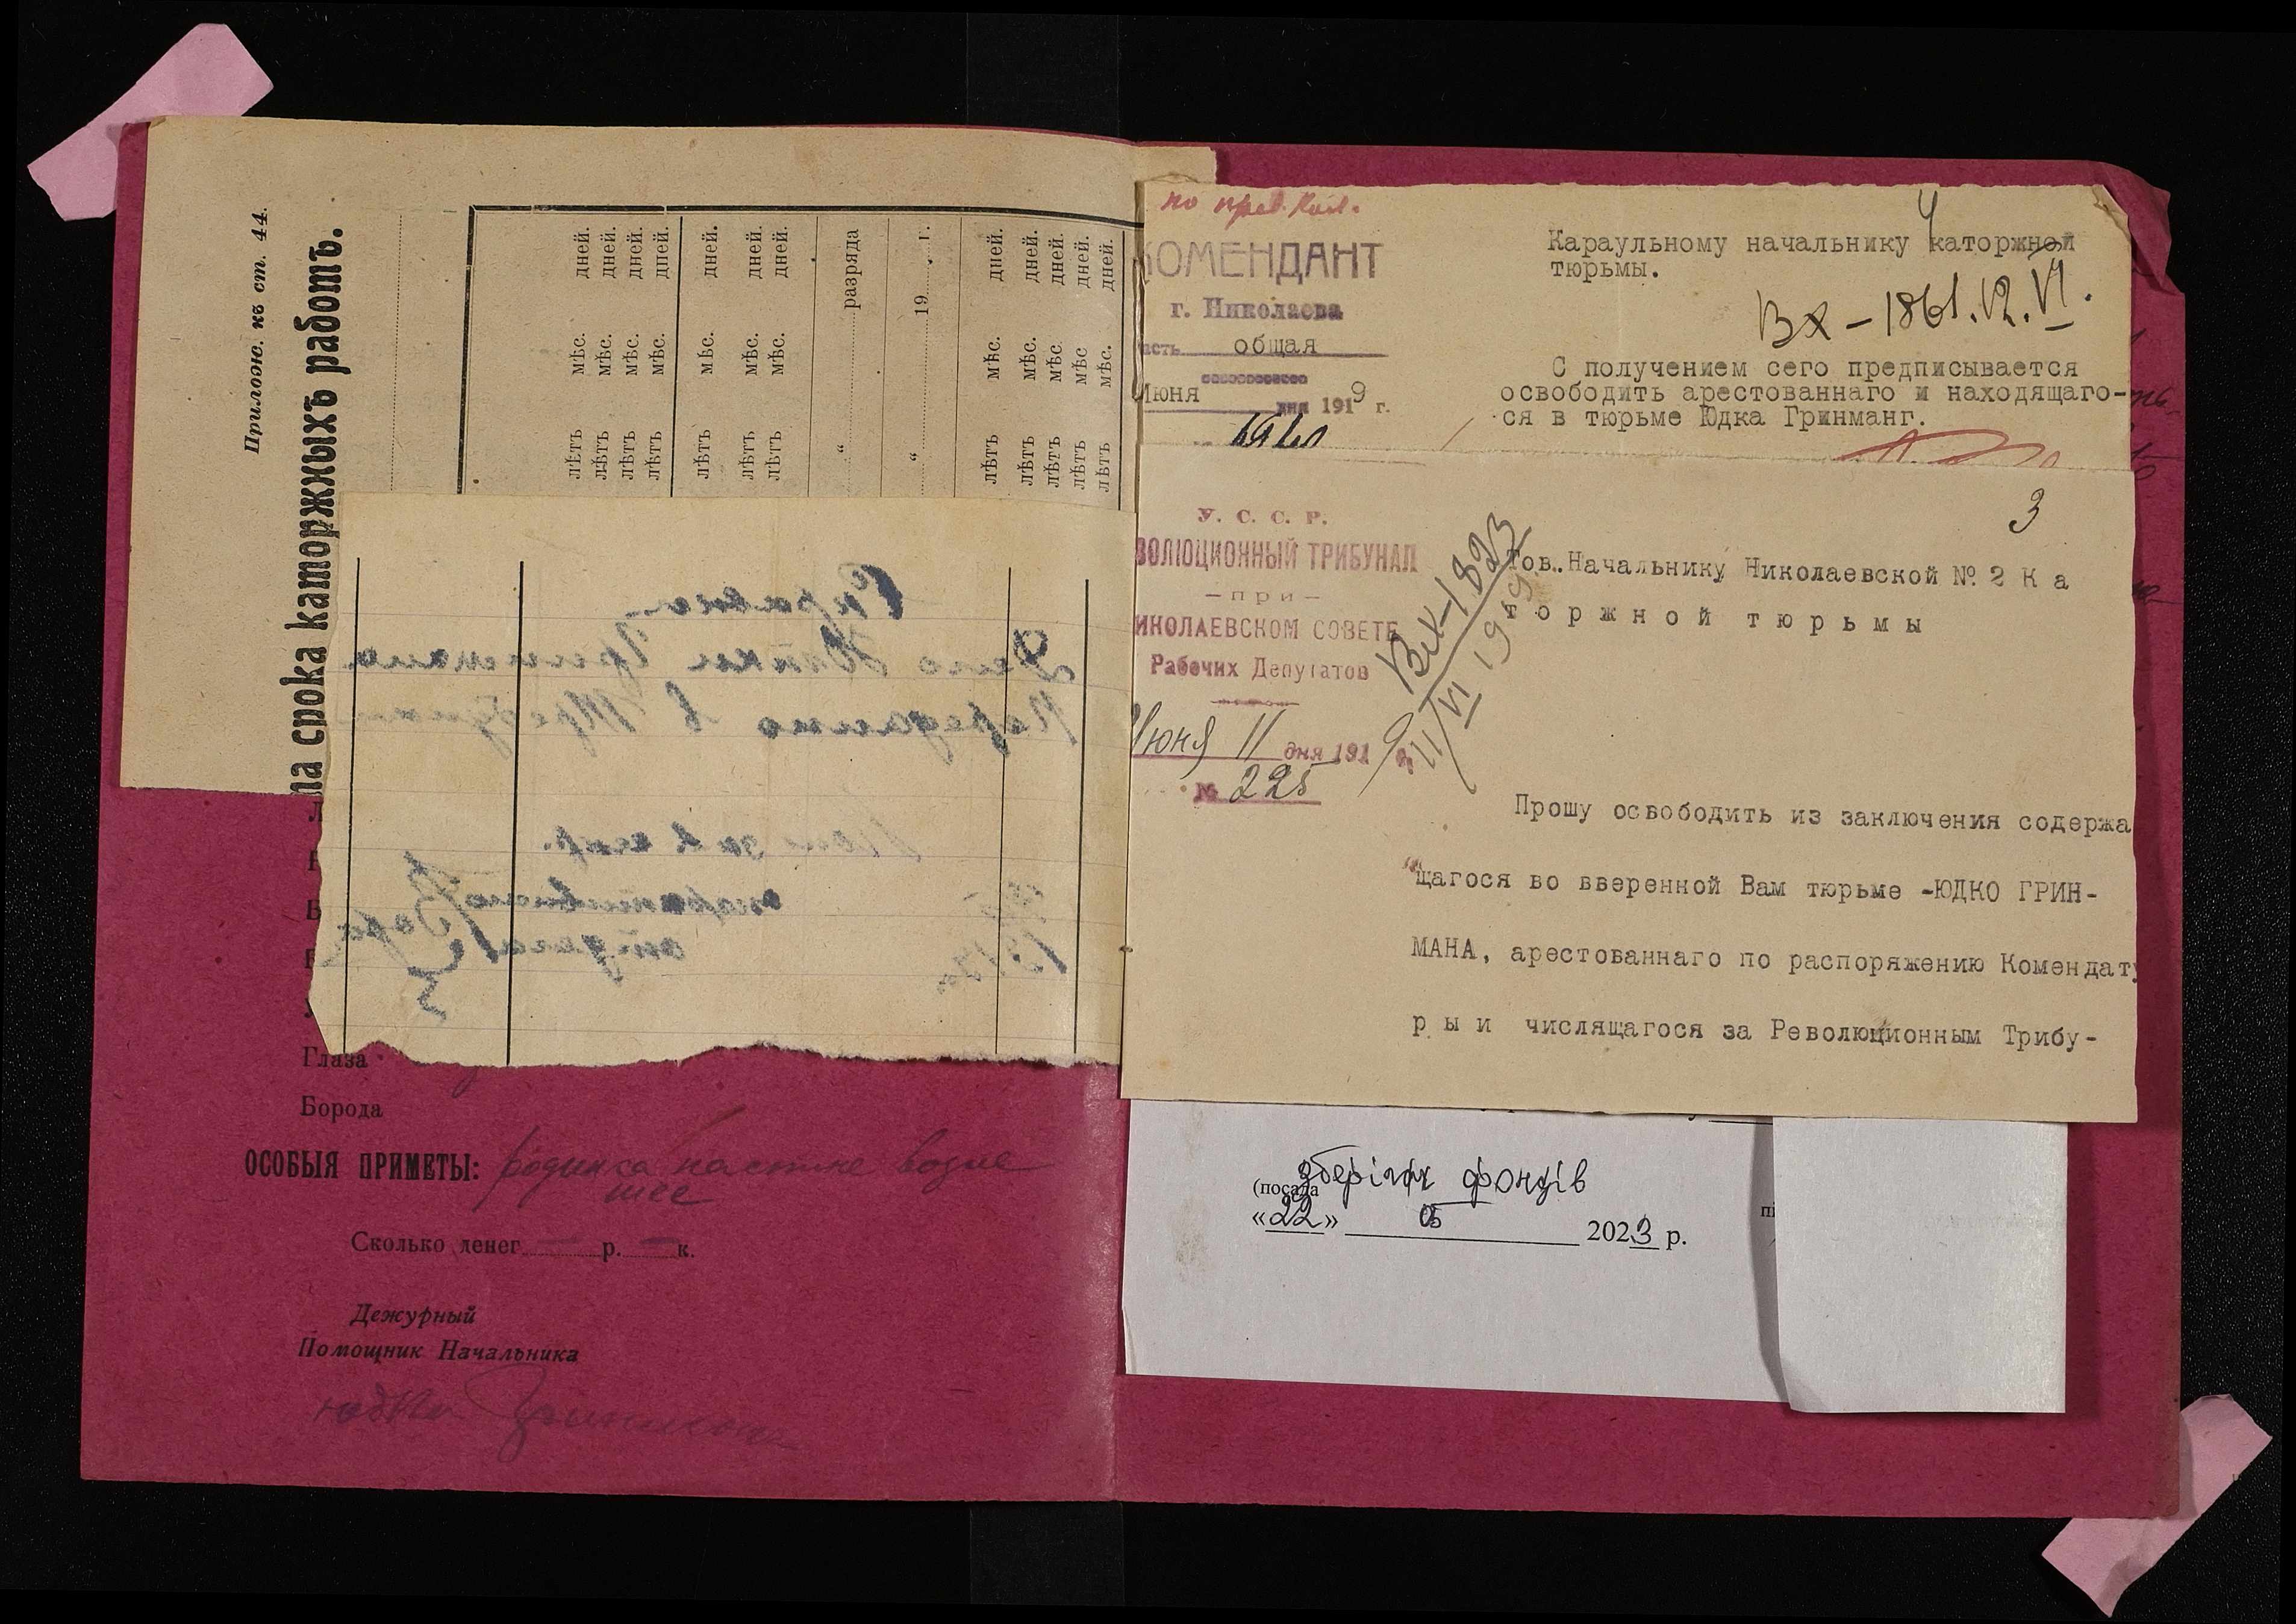 Прилож. къ ст. 44.
на срока каторжныхъ работъ.
лѣтъ мѣс. дней.
лѣтъ мѣс. дней.
лѣтъ мѣс. дней.
лѣтъ мѣс. дней.
лѣтъ мѣс. дней.
лѣтъ мѣс. дней.
лѣтъ мѣс. дней.
„ разряда
„ 19 г.
лѣтъ мѣс. дней.
лѣтъ мѣс. дней.
лѣтъ мѣс. дней.
лѣтъ мѣс дней.
лѣтъ мѣс. дней.
Справка
Дело Юдки Гринмана
Передано в Трибунал
Глаза
Борода
ОСОБЫЯ ПРИМЕТЫ: родинка на спине возле
шее
Сколько денег — р. — к.
Дежурный
Помощник Начальника
Юдка Гринман
КОМЕНДАНТ
г. Николаева
асть общая
Июня
дня 1919 г.
4
Караульному начальнику каторжной
тюрьмы.
Вх – 1861. 12. VI.
С получением сего предписывается
освободить арестованнаго и находящаго-
ся в тюрьме Юдка Гринманг.
3
У. С. С. Р.
ВОЛЮЦИОННЫЙ ТРИБУНАЛ
— при —
ИКОЛАЕВСКОМ СОВЕТЕ
Рабочих Депутатов
Июня 11 дня 1919 г.
№ 225
Вх – 1823
11/VI 19
Тов. Начальнику Николаевской № 2 К а
т о р ж н о й т ю р ь м ы
Прошу освободить из заключения содержа
щагося во вверенной Вам тюрьме -ЮДКО ГРИН-
МАНА, арестованнаго по распоряжению Комендату
р ы и числящагося за Революционным Трибу-
зберігач фондів
(посада
«22» 05 2023 р.